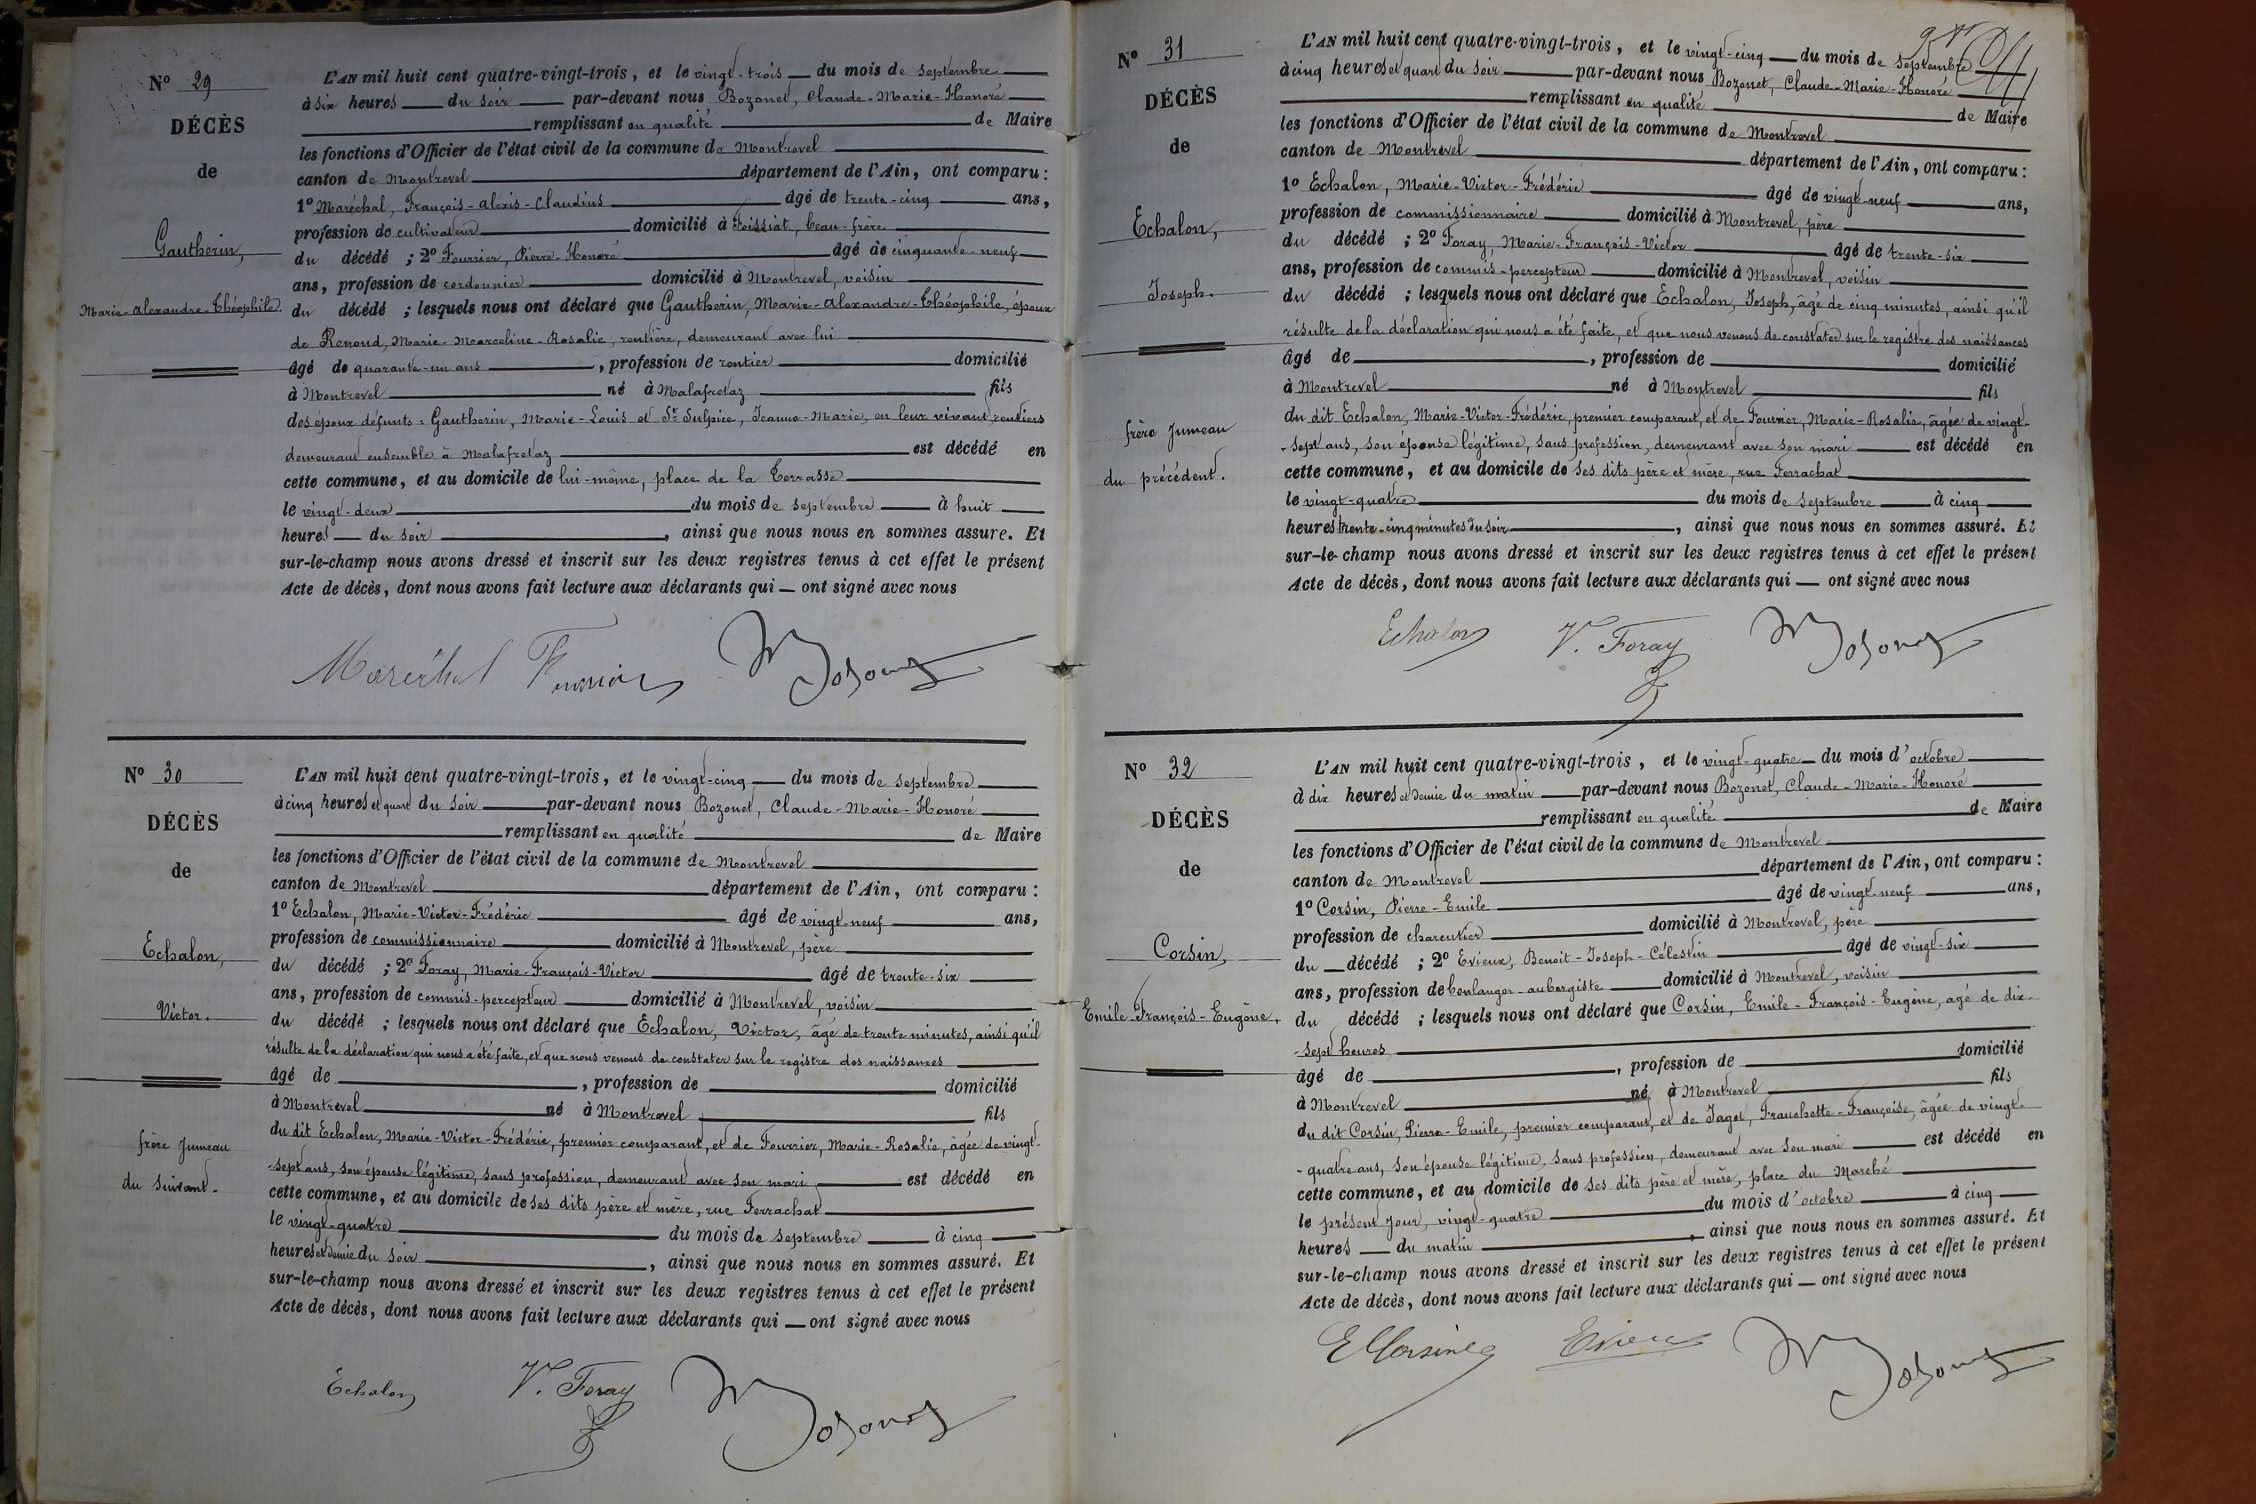 N° 29
DÉCÈS
de
Gautherin,
Marie-Alexandre-Théophile.
L'AN mil huit cent quatre-vingt-trois, et le vingt-trois du mois de septembre
à six heures du soir par-devant nous Bozonet, Claude-Marie-Honoré
remplissant en qualité de Maire
les fonctions d'Officier de l'état civil de la commune de Montrevel
canton de Montrevel département de l'Ain, ont comparu :
1° Maréchal, François-Alexis-Claudius âgé de trente-cinq ans,
profession de cultivateur domicilié à Foissiat, beau-frère
du décédé ; 2° Fournier, Pierre-Honoré âgé de cinquante-neuf
ans, profession de cordonnier domicilié à Montrevel, voisin
du décédé ; lesquels nous ont déclaré que Gautherin, Marie-Alexandre-Théophile, époux
de Renoud, Marie-Marceline-Rosalie, rentière, demeurant avec lui
âgé de quarante-un ans, profession de rentier domicilié
à Montrevel né à Malafretaz fils
des époux défunts : Gautherin, Marie-Louis et St Sulpice, Jeanne-Marie, en leur vivant, rentiers
demeurant ensemble à Malafretaz est décédé en
cette commune, et au domicile de lui-même, place de la Terrasse
le vingt-deux du mois de septembre à huit
heures du soir, ainsi que nous nous en sommes assuré. Et
sur-le-champ nous avons dressé et inscrit sur les deux registres tenus à cet effet le présent
Acte de décès, dont nous avons fait lecture aux déclarants qui ont signé avec nous
Maréchal Fournier Bozonet
N° 30
DÉCÈS
de
Echalon,
Victor.
frère jumeau
du suivant.
L'AN mil huit cent quatre-vingt-trois, et le vingt-cinq du mois de septembre
à cinq heures et quart du soir par-devant nous Bozonet, Claude-Marie-Honoré
remplissant en qualité de Maire
les fonctions d'Officier de l'état civil de la commune de Montrevel
canton de Montrevel département de l'Ain, ont comparu :
1° Echalon, Marie-Victor-Frédéric âgé de vingt-neuf ans,
profession de commissionnaire domicilié à Montrevel, père
du décédé ; 2° Foray, Marie-François-Victor âgé de trente-six
ans, profession de commis-percepteur domicilié à Montrevel, voisin
du décédé ; lesquels nous ont déclaré que Echalon, Victor, âgé de trente minutes, ainsi qu'il
résulte de la déclaration qui nous a été faite, et que nous venons de constater sur le registre des naissances
âgé de , profession de domicilié
à Montrevel né à Montrevel fils
du dit Echalon, Marie-Victor-Frédéric, premier comparant, et de Fourrier, Marie-Rosalie, âgée de vingt-
-sept ans, son épouse légitime, sans profession, demeurant avec son mari est décédé en
cette commune, et au domicile de ses dits père et mère, rue Ferrachat
le vingt-quatre du mois de septembre à cinq
heures et demie du soir, ainsi que nous nous en sommes assuré. Et
sur-le-champ nous avons dressé et inscrit sur les deux registres tenus à cet effet le présent
Acte de décès, dont nous avons fait lecture aux déclarants qui ont signé avec nous
Echalon V. Foray Bozonet
N° 31
DÉCÈS
de
Echalon,
Joseph.
frère jumeau
du précédent.
L'AN mil huit cent quatre-vingt-trois, et le vingt-cinq du mois de septembre
à cinq heures et quart du soir par-devant nous Bozonet, Claude-Marie-Honoré
remplissant en qualité de Maire
les fonctions d'Officier de l'état civil de la commune de Montrevel
canton de Montrevel département de l'Ain, ont comparu :
1° Echalon, Marie-Victor-Frédéric âgé de vingt-neuf ans,
profession de commissionnaire domicilié à Montrevel, père
du décédé ; 2° Foray, Marie-François-Victor âgé de trente-six
ans, profession de commis-percepteur domicilié à Montrevel, voisin
du décédé ; lesquels nous ont déclaré que Echalon, Joseph, âgé de cinq minutes, ainsi qu'il
résulte de la déclaration qui nous a été faite, et que nous venons de constater sur le registre des naissances
âgé de , profession de domicilié
à Montrevel né à Montrevel fils
du dit Echalon, Marie-Victor-Frédéric, premier comparant, et de Fourrier, Marie-Rosalie, âgée de vingt-
-sept ans, son épouse légitime, sans profession, demeurant avec son mari est décédé en
cette commune, et au domicile de ses dits père et mère, rue Ferrachat
le vingt-quatre du mois de septembre à cinq
heures trente-cinq minutes du soir, ainsi que nous nous en sommes assuré. Et
sur-le-champ nous avons dressé et inscrit sur les deux registres tenus à cet effet le présent
Acte de décès, dont nous avons fait lecture aux déclarants qui ont signé avec nous
Echalon V. Foray Bozonet
N° 32
DÉCÈS
de
Corsin,
Emile-François-Eugène.
L'AN mil huit cent quatre-vingt-trois, et le vingt-quatre du mois d'octobre
à dix heures et demie du matin par-devant nous Bozonet, Claude-Marie-Honoré
remplissant en qualité de Maire
les fonctions d'Officier de l'état civil de la commune de Montrevel
canton de Montrevel département de l'Ain, ont comparu :
1° Corsin, Pierre-Emile âgé de vingt-neuf ans,
profession de charcutier domicilié à Montrevel, père
du décédé ; 2° Evieux, Benoit-Joseph-Célestin âgé de vingt-six
ans, profession de boulanger-aubergiste domicilié à Montrevel, voisin
du décédé ; lesquels nous ont déclaré que Corsin, Emile-François-Eugène, agé de dix-
-sept heures
âgé de , profession de domicilié
à Montrevel né à Montrevel fils
du dit Corsin, Pierre-Emile, premier comparant, et de Jaget, Franchette-Françoise, âgée de vingt-
-quatre ans, son épouse légitime, sans profession, demeurant avec son mari est décédé en
cette commune, et au domicile de ses dits père et mère, place du Marché
le présent jour, vingt-quatre du mois d'octobre à cinq
heures du matin, ainsi que nous nous en sommes assuré. Et
sur-le-champ nous avons dressé et inscrit sur les deux registres tenus à cet effet le présent
Acte de décès, dont nous avons fait lecture aux déclarants qui ont signé avec nous
E Corsin Evieux Bozonet